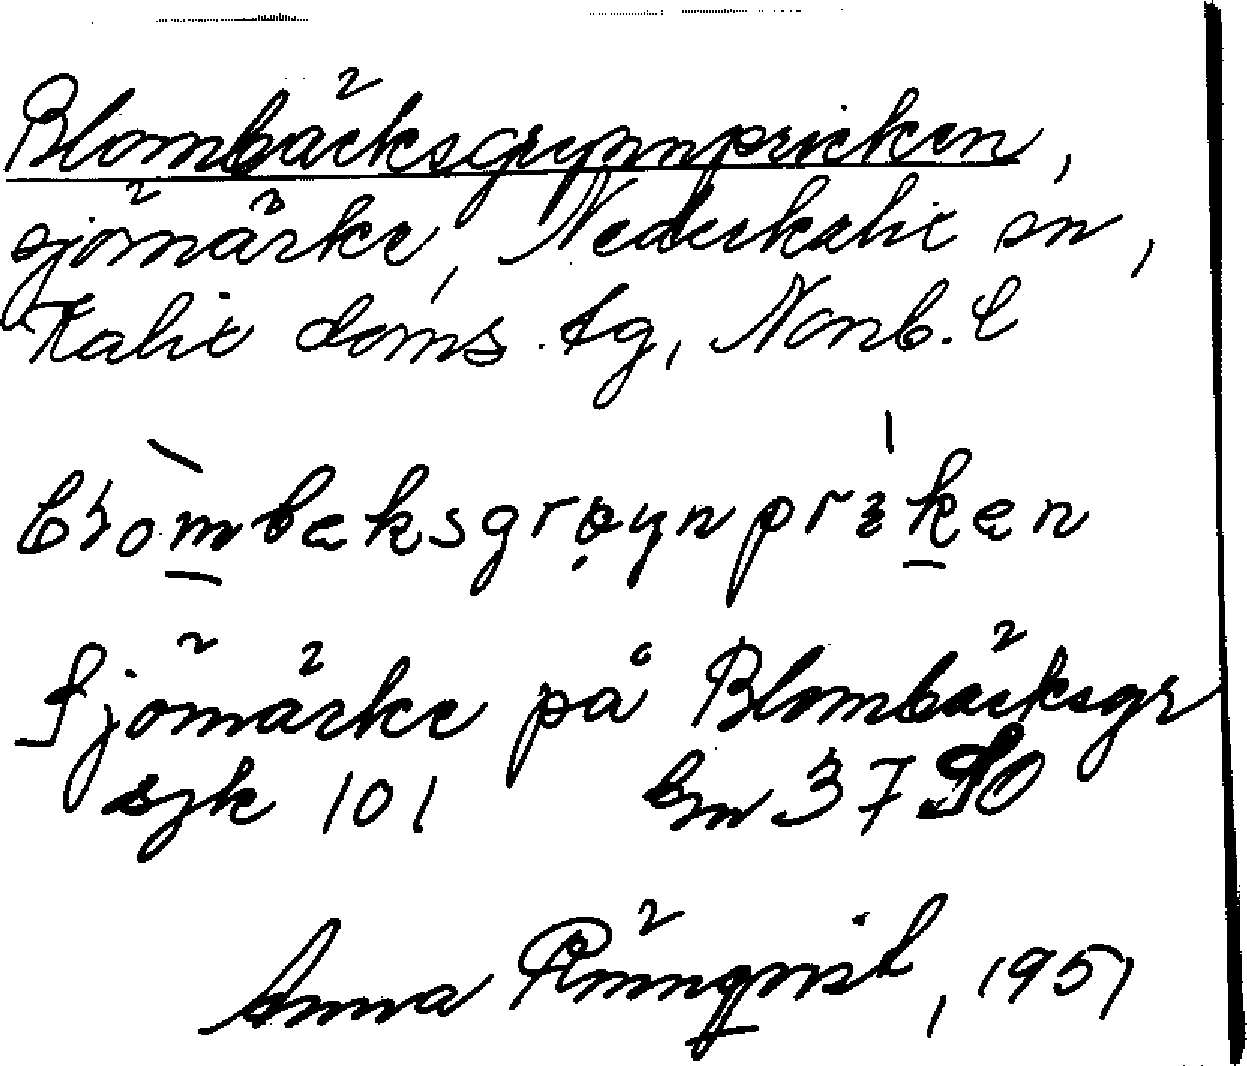 Blombäcksgrynnpricken,
sjömärke, Nederkalix sn,
Kalix doms. tg, Norrb. l
blombæksgrøynprıken
Sjömärke på Blombäcksgr
sjk 101 Gm 3750
Anna Rönnqvist, 1951